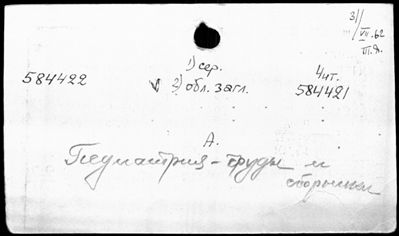 3/VII.62
III.Я.
1) сер.
584422 2) обл. загл. Чит. 584421
А.
Педиатрия - труды и
сборники